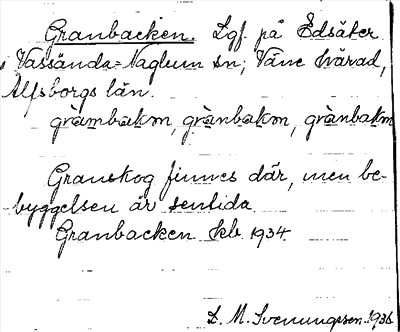 Granbacken. Lgf. på Edsäter
i Vassända-Naglum sn; Väne härad,
Älfsborgs län.
gràmbakm, grànbakm, grànbakm
Granskog finnes där, men be-
byggelsen är sentida
Granbacken kb 1934
D. M. Svenungsson. 1936